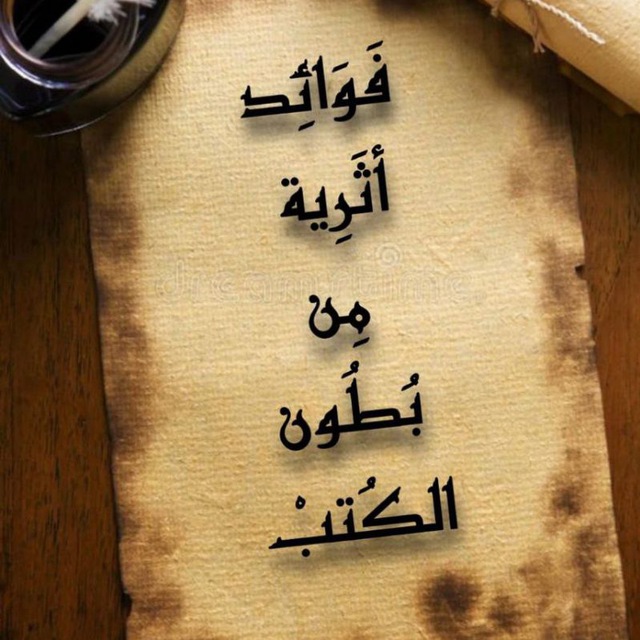 فَوَائِد
أثَرِية
مِن
بُطُون
الكُتبْ
dreamstime